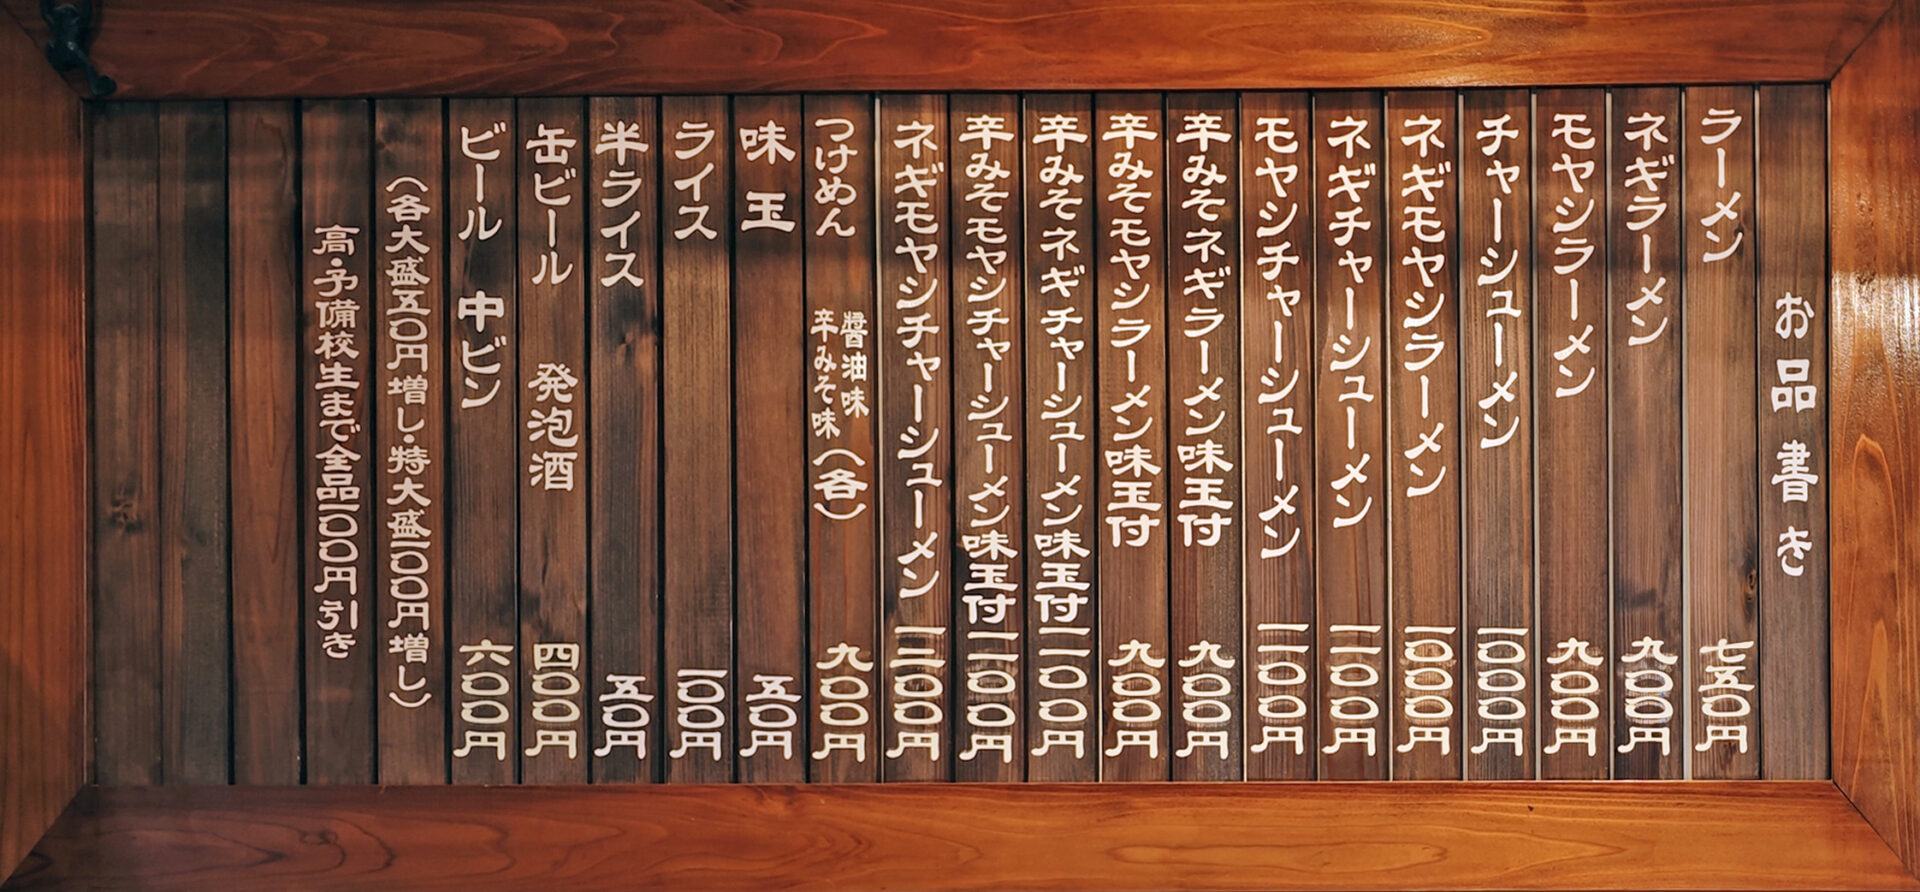 お品書き
ラーメン 七五〇円
ネギラーメン 九〇〇円
モヤシラーメン 九〇〇円
チャーシューメン 一〇〇〇円
ネギモヤシラーメン 一〇〇〇円
ネギチャーシューメン 一一〇〇円
モヤシチャーシューメン 一一〇〇円
辛みそネギラーメン味玉付 九〇〇円
辛みそモヤシラーメン味玉付 九〇〇円
辛みそネギチャーシューメン味玉付 一一〇〇円
辛みそモヤシチャーシューメン味玉付 一一〇〇円
ネギモヤシチャーシューメン 一二〇〇円
つけめん 醤油味 辛みそ味(各) 九〇〇円
味玉 五〇円
ライス 一〇〇円
半ライス 五〇円
缶ビール 発泡酒 四〇〇円
ビール 中ビン 六〇〇円
(各大盛五〇円増し・特大盛一〇〇円増し)
高・予備校生まで全品一〇〇円引き